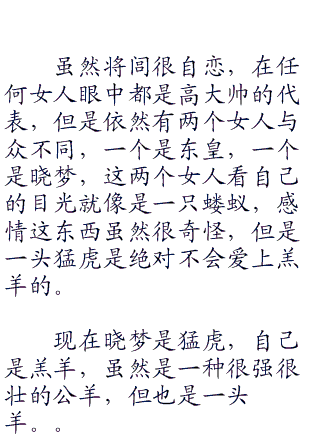 虽然将闾很自恋，在任
何女人眼中都是高大帅的代
表，但是依然有两个女人与
众不同，一个是东皇，一个
是晓梦，这两个女人看自己
的目光就像是一只蝼蚁，感
情这东西虽然很奇怪，但是
一头猛虎是绝对不会爱上羔
羊的。
现在晓梦是猛虎，自己
是羔羊，虽然是一种很强很
壮的公羊，但也是一头
羊。。